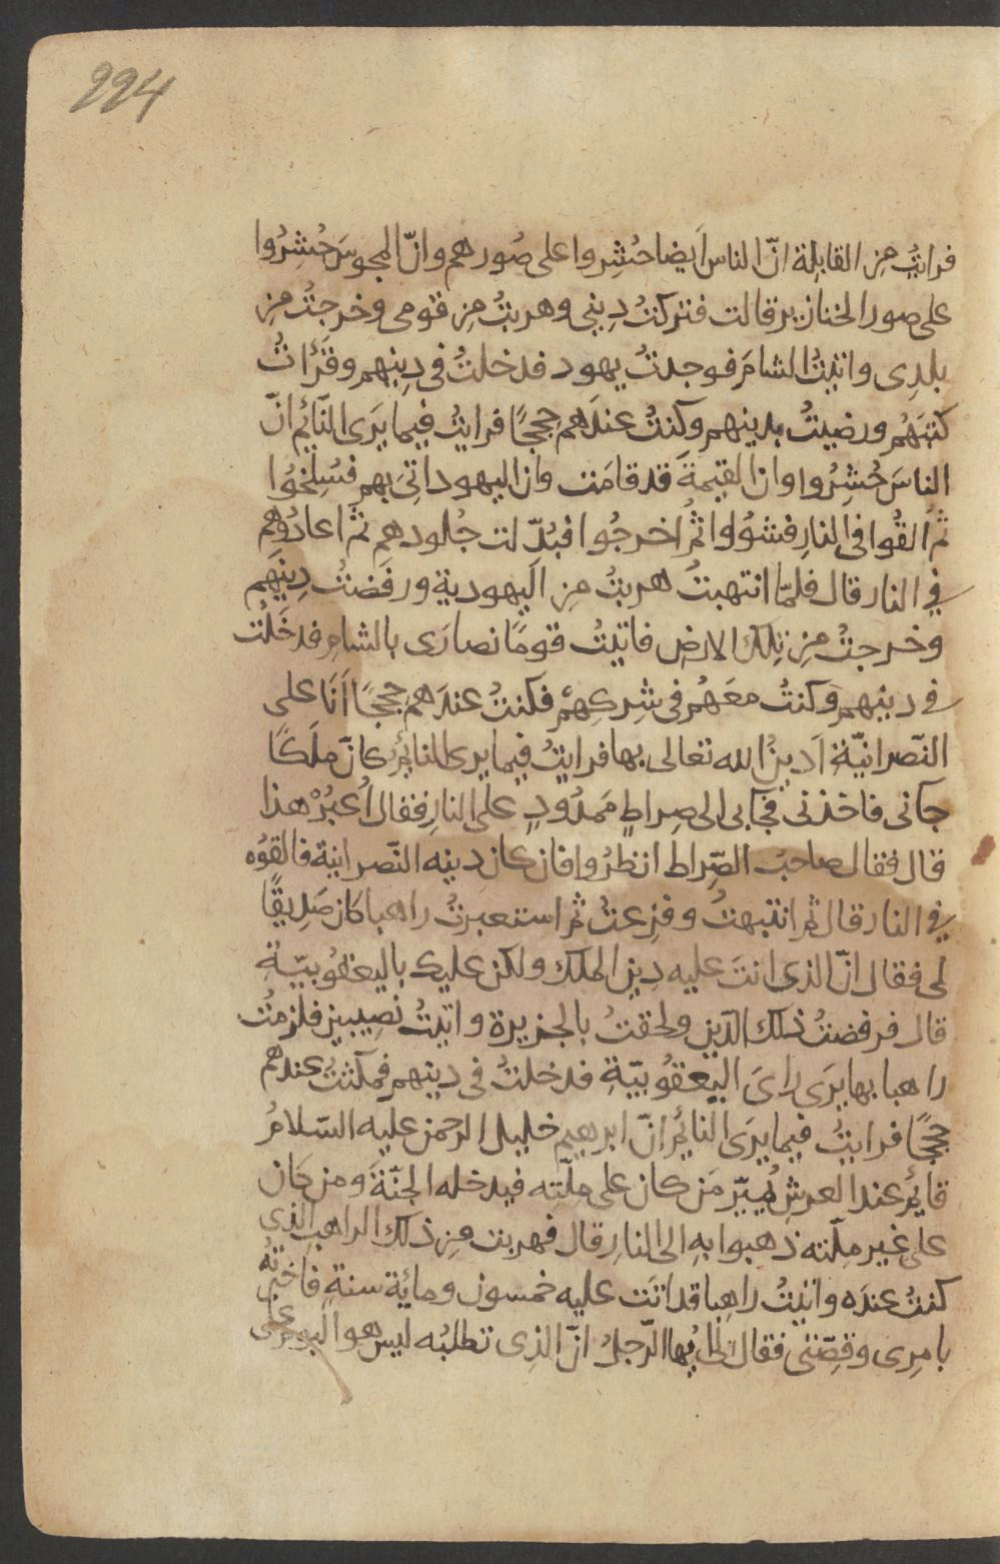 224
فرايتُ مِن القابِلة انّ الناس اَيضا حُشِروا على صُورهم وانّ المجوسَ حُشِرُوا
على صور الخنازير قالت فتركتُ دِينِي وهربتُ مِن قومى وخرجتُ مِن
بلدِى واتيتُ الشامَ فوجدتُ يهود فدخلتُ فى دِينِهم وقَرَاتُ
كتبَهُم ورضيتُ بدينهم وكنتُ عندَهم حِجَجًا فرايتُ فيما يَرَى النّايُم انّ
الناسَ حُشِرُوا وان القيمةَ قد قامَت وان اليهود اتِىَ بِهم فسُلِخُوا
ثُم اُلقُوا فى النارِ فشُوُوا ثُم اُخرجُوا فبُدّلت جُلودهم ثم اعادُوهم
فى النار قال فلمّا انتهبتُ هربتُ مِن اليهودية ورفَضتُ دِينَهم
وخرجتُ مِن تِلك الارضِ فاتيتُ قومًا نصارَى بالشامِ فدخَلتُ
فى دينِهم وكنتُ معَهُم فى شِركِهِم فكنتُ عندَهم حِجَجًا اَنَا على
النّصرانيّة اَدِينُ الله تعالى بها فرايتُ فيما يرى النايُم كانّ ملَكًا
جآنى فاخذنى فجآبى الى صِراطٍ ممدُودٍ على النارِ فقال اُعبُرْ هذا
قال فقال صاحبُ الصِّراط انظرُوا فان كان دِينه النّصرانية فالقوُه
فى النار قال ثم انتبهتُ وفزِعتُ ثم استعبرتُ راهبا كان صَدِيقًا
لى فقال انّ الذى انتَ عليه دِين الملك ولكن عليك باليعقُوبيّة
قال فرفضتُ ذلك الدّين ولحقتُ بالجزيرة واتيتُ نصِيبين فلزمتُ
راهبا بها يرَى راىَ اليعقُوبيّةِ فدخلتُ فى دينهم فمكثتُ عندهم
حِجَجًا فرايتُ فيما يرَى النايُم انّ ابرهيم خليل الرحمن عليه السّلامُ
قايُم عند العرشِ يُميّز مَن كان على مِلّته فيدخله الجنّةَ ومن كان
على غير مِلّته ذهبوا بِهِ الى النارِ قال فهربت مِن ذلك الراهب الذى
كنتُ عندَه واتيتُ راهِبا قد اتَت عليه خمسون ومائَة سنةٍ فاخبرتهُ
بامرِى وقِصّتى فقال لى ايُّها الرّجلُ انّ الذِى تطلبُه ليس هو اليوم على